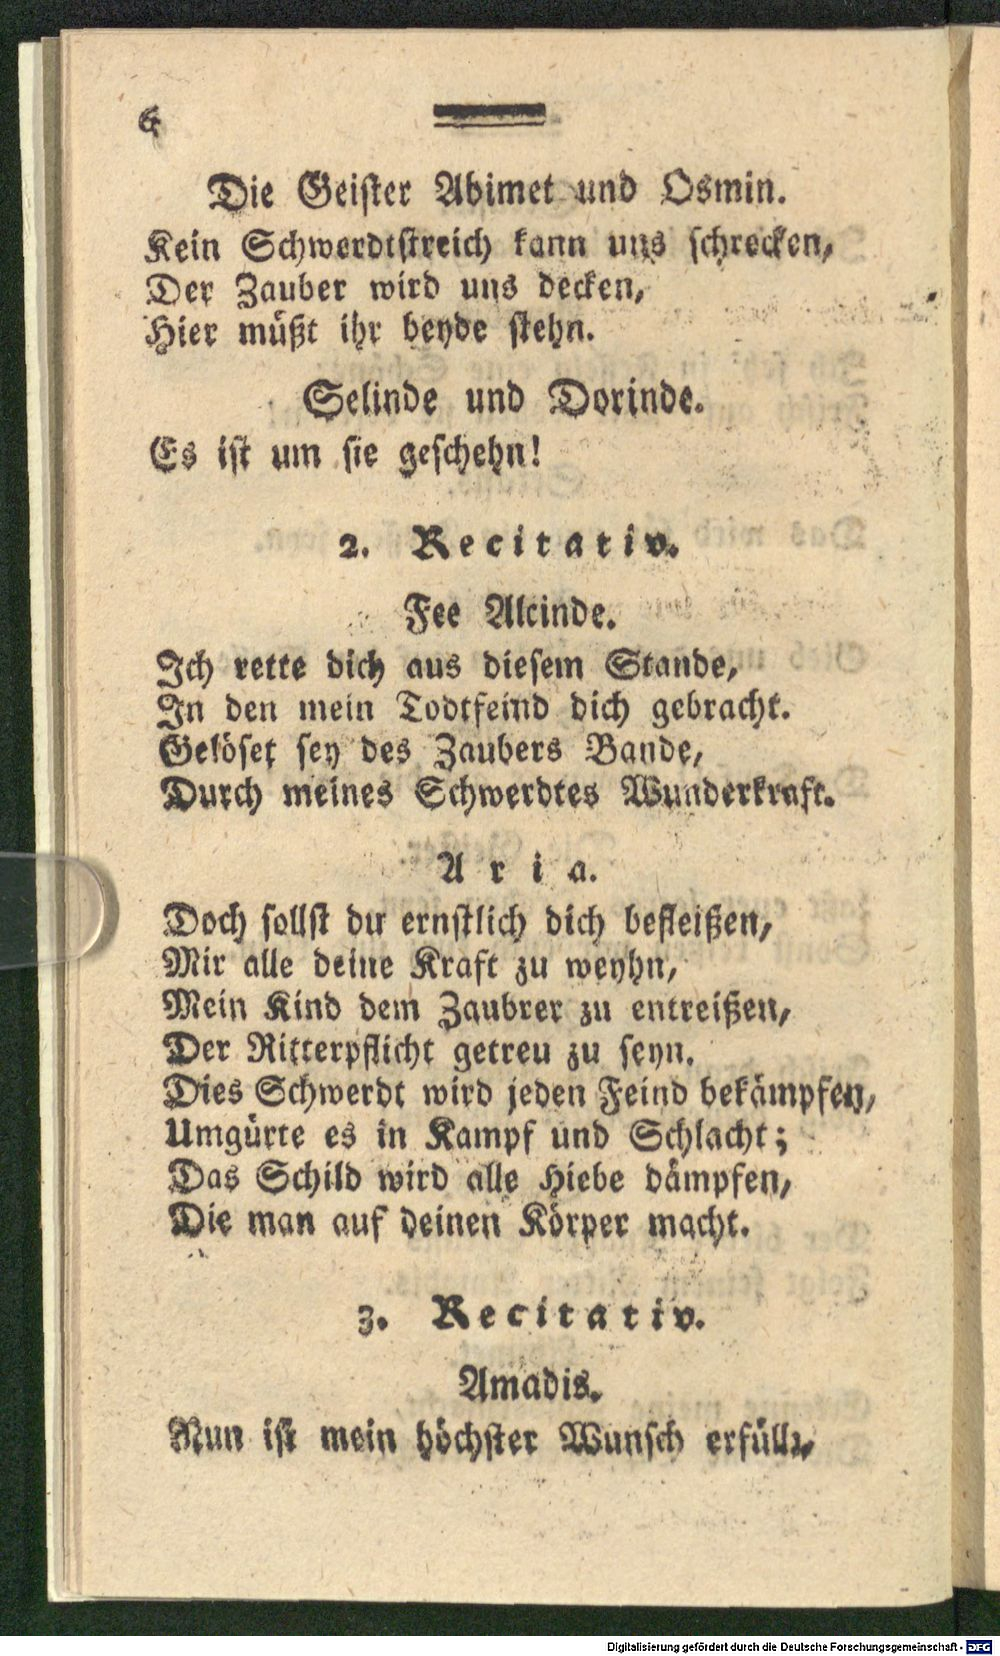 6
Die Geister Abimet und Osmin.
Kein Schwerdtstreich kann uns schrecken,
Der Zauber wird uns decken,
Hier müßt ihr beyde stehn.
Selinde und Dorinde.
Es ist um sie geschehn!
2. Recitativ.
Fee Alcinde.
Ich rette dich aus diesem Stande,
In den mein Todtfeind dich gebracht.
Gelöset sey des Zaubers Bande,
Durch meines Schwerdtes Wunderkraft.
Aria.
Doch sollst du ernstlich dich befleißen,
Mir alle deine Kraft zu weyhn,
Mein Kind dem Zaubrer zu entreißen,
Der Ritterpflicht getreu zu seyn.
Dies Schwerdt wird jeden Feind bekämpfen,
Umgürte es in Kampf und Schlacht;
Das Schild wird alle Hiebe dämpfen,
Die man auf deinen Körper macht.
3. Recitativ.
Amadis.
Nun ist mein höchster Wunsch erfüllt,
Digitalisierung gefördert durch die Deutsche Forschungsgemeinschaft - DFG